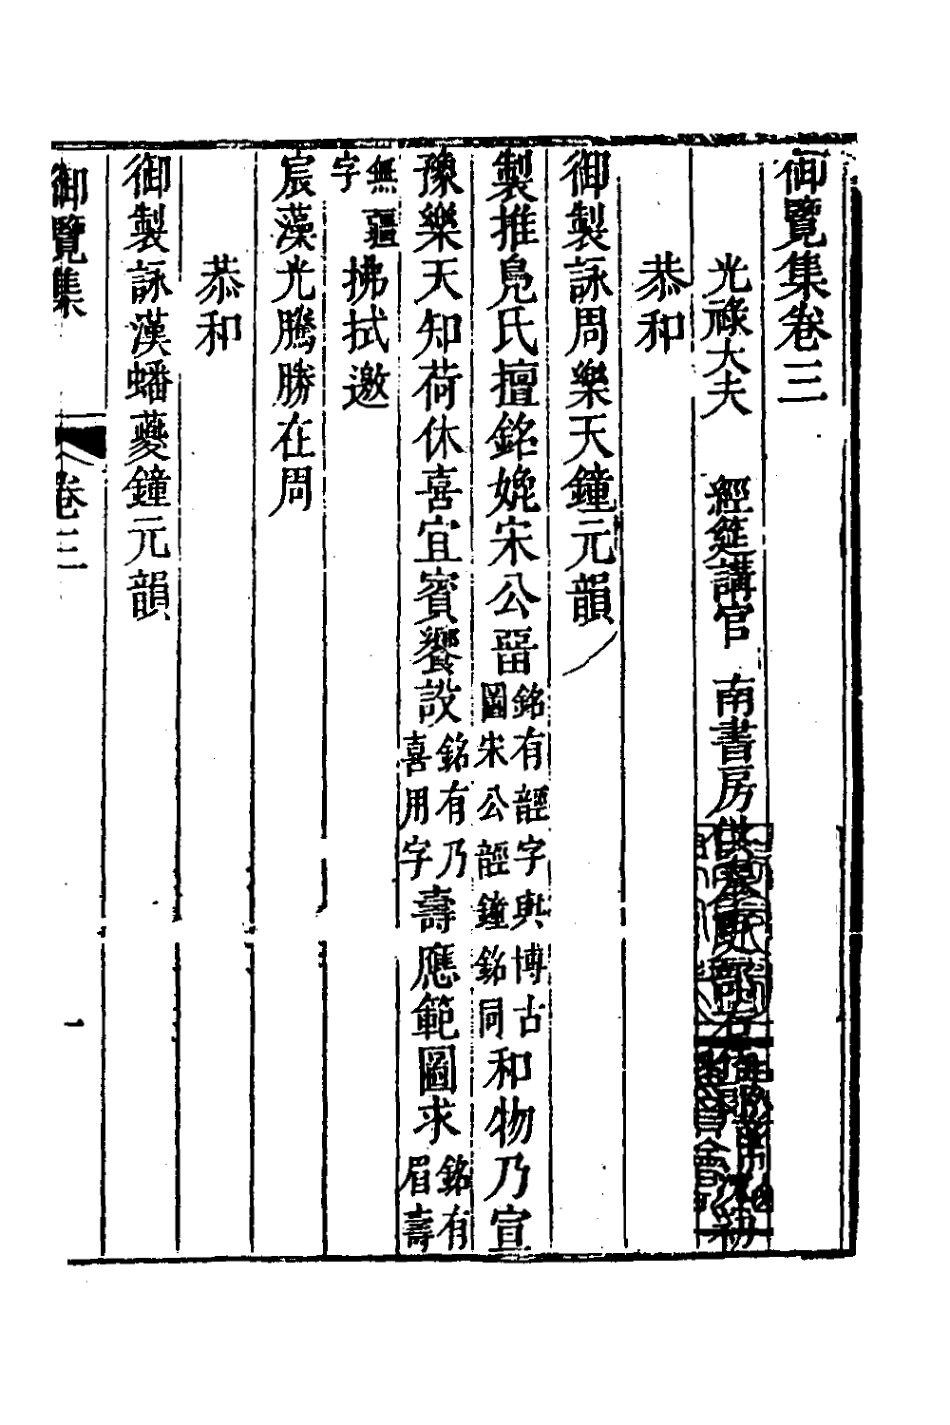 御覽集卷三
光祿大夫 經筵講官 南書房供奉吏部右侍郎沈初
恭和
御製詠周樂天鐘元韻
製推鳧氏擅銘娩宋公銘有䪫字與博古圖宋公䪫鐘銘同和物乃宣
豫樂天知荷休喜宜賓饗設銘有乃喜用字壽應範圖求銘有眉壽
無疆字拂拭邀
宸藻光騰勝在周
恭和
御製詠漢蟠夔鐘元韻
御覽集 卷三 一